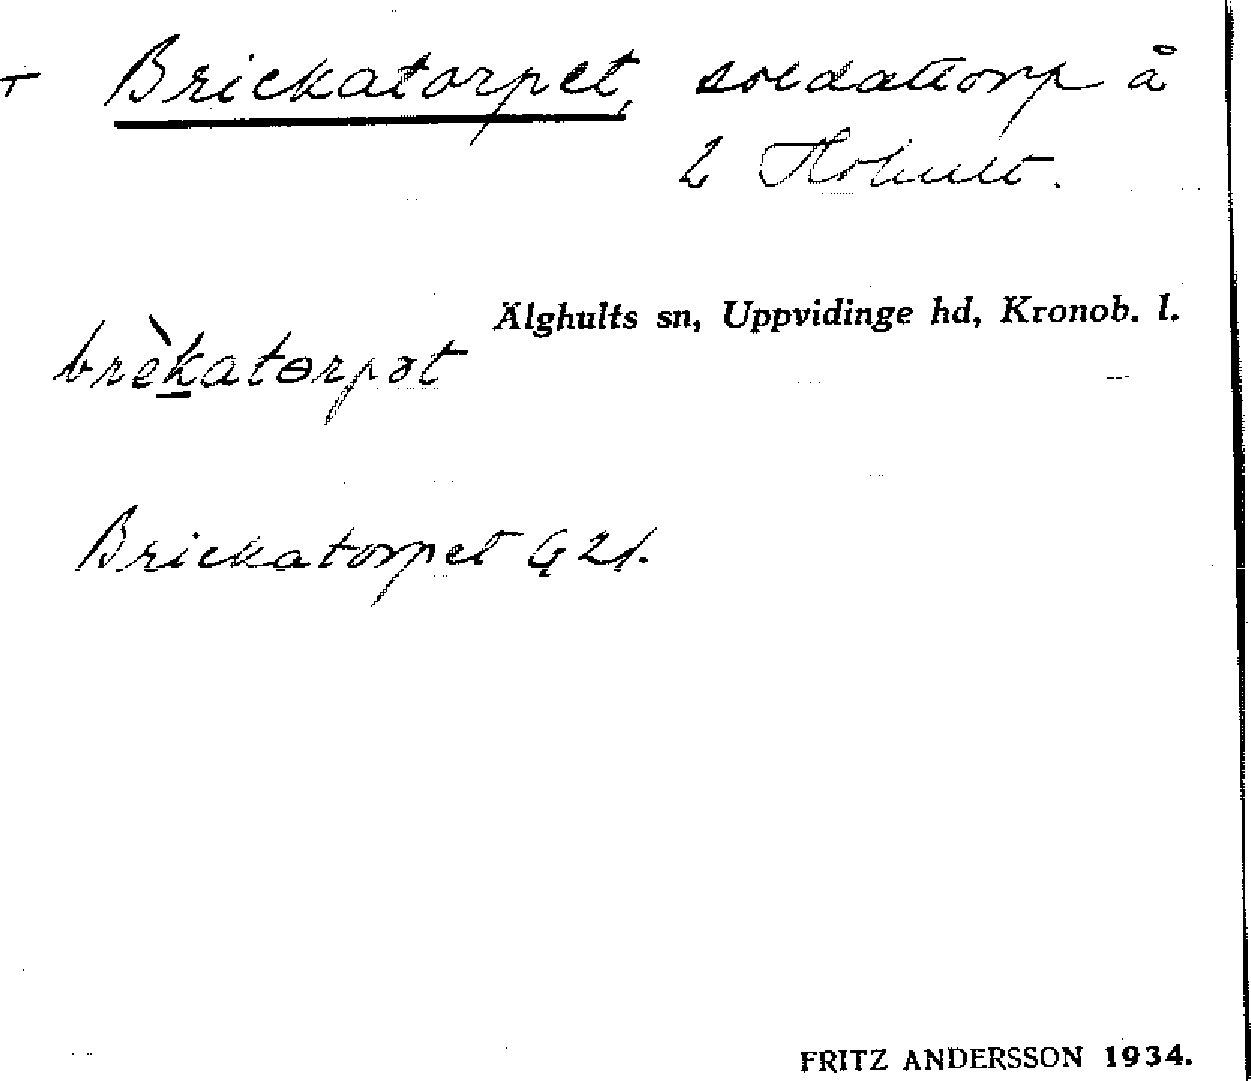 T Brickatorpet, soldattorp å
2 Hohult.
Älghults sn, Uppvidinge hd, Kronob. l.
brèkatɵrpət
Brickatorpet G 21.
FRITZ ANDERSSON 1934.